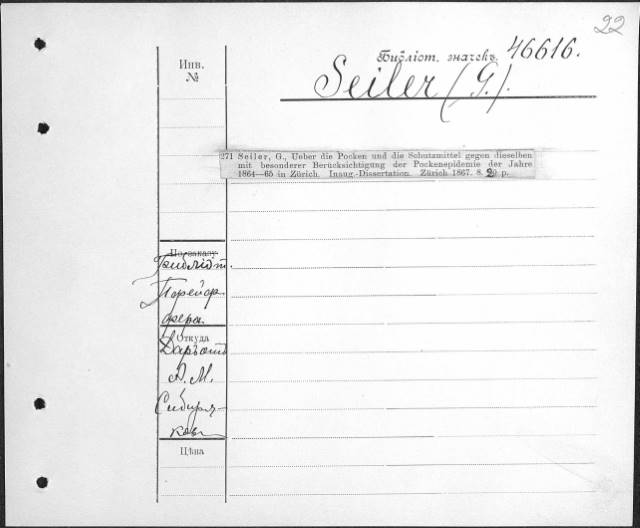 22
Инв.
№
Библіот. значекъ. 46616.
Seiler (G.).
271 Seiler, G., Ueber die Pocken und die Schutzmittel gegen dieselben
mit besonderer Berücksichtigung der Pockenepidemie der Jahre
1864—65 in Zürich. Inaug.-Dissertation. Zürich 1867. 8. 20 p.
По заказу
Библіот.
Порейор
фера.
Откуда
Даръ отъ
А. М.
Сибиря-
кова
Цѣна